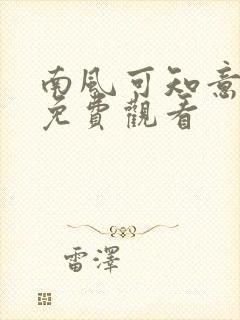 南風可知意
免費觀看
雷澤